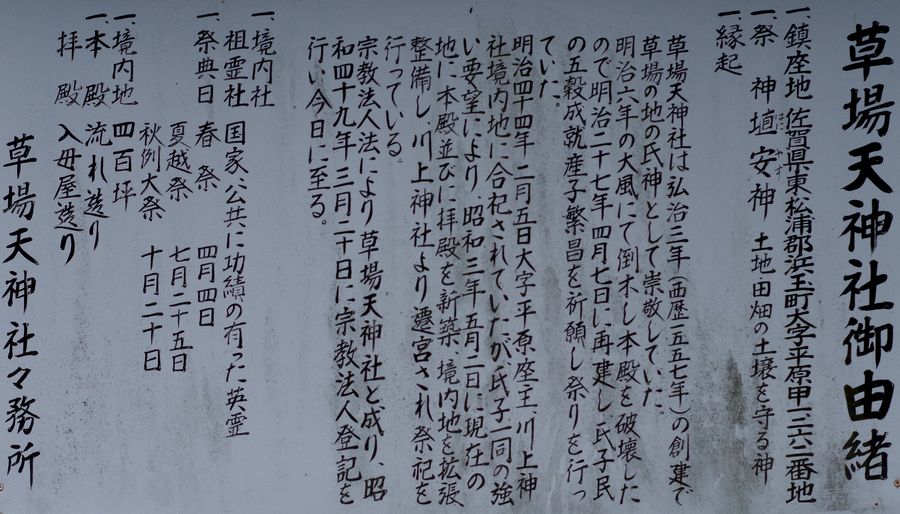 草場天神社御由緒
一、鎮座地 佐賀県東松浦郡浜玉町大字平原甲一三六二番地
一、祭 神 埴安神 土地・田畑の土壌を守る神
一、縁起
草場天神社は弘治三年(西歴一五五七年)の創建で
草場の地の氏神として崇敬していた。
明治六年の大風にて倒木し本殿を破壊した
ので明治二十七年四月七日に再建し氏子民
の五穀成就産子繁昌を祈願し祭りを行っ
ていた。
明治四十四年二月五日大字平原座主、川上神
社境内地に合祀されていたが氏子一同の強
い要望により、昭和三年五月二日に現在の
地に本殿並びに拝殿を新築 境内地を拡張
整備し、川上神社より遷宮され祭祀を
行っている。
宗教法人法により草場天神社と成り、昭
和四十九年三月二十日に宗教法人登記を
行い今日に至る。
一、境内社
祖霊社 国家、公共に功績の有った英霊
一、祭典日 春祭 四月四日
夏越祭 七月二十五日
秋例大祭 十月二十日
一、境内地 四百坪
一、本殿 流れ造り
拝殿 入母屋造り
草場天神社々務所